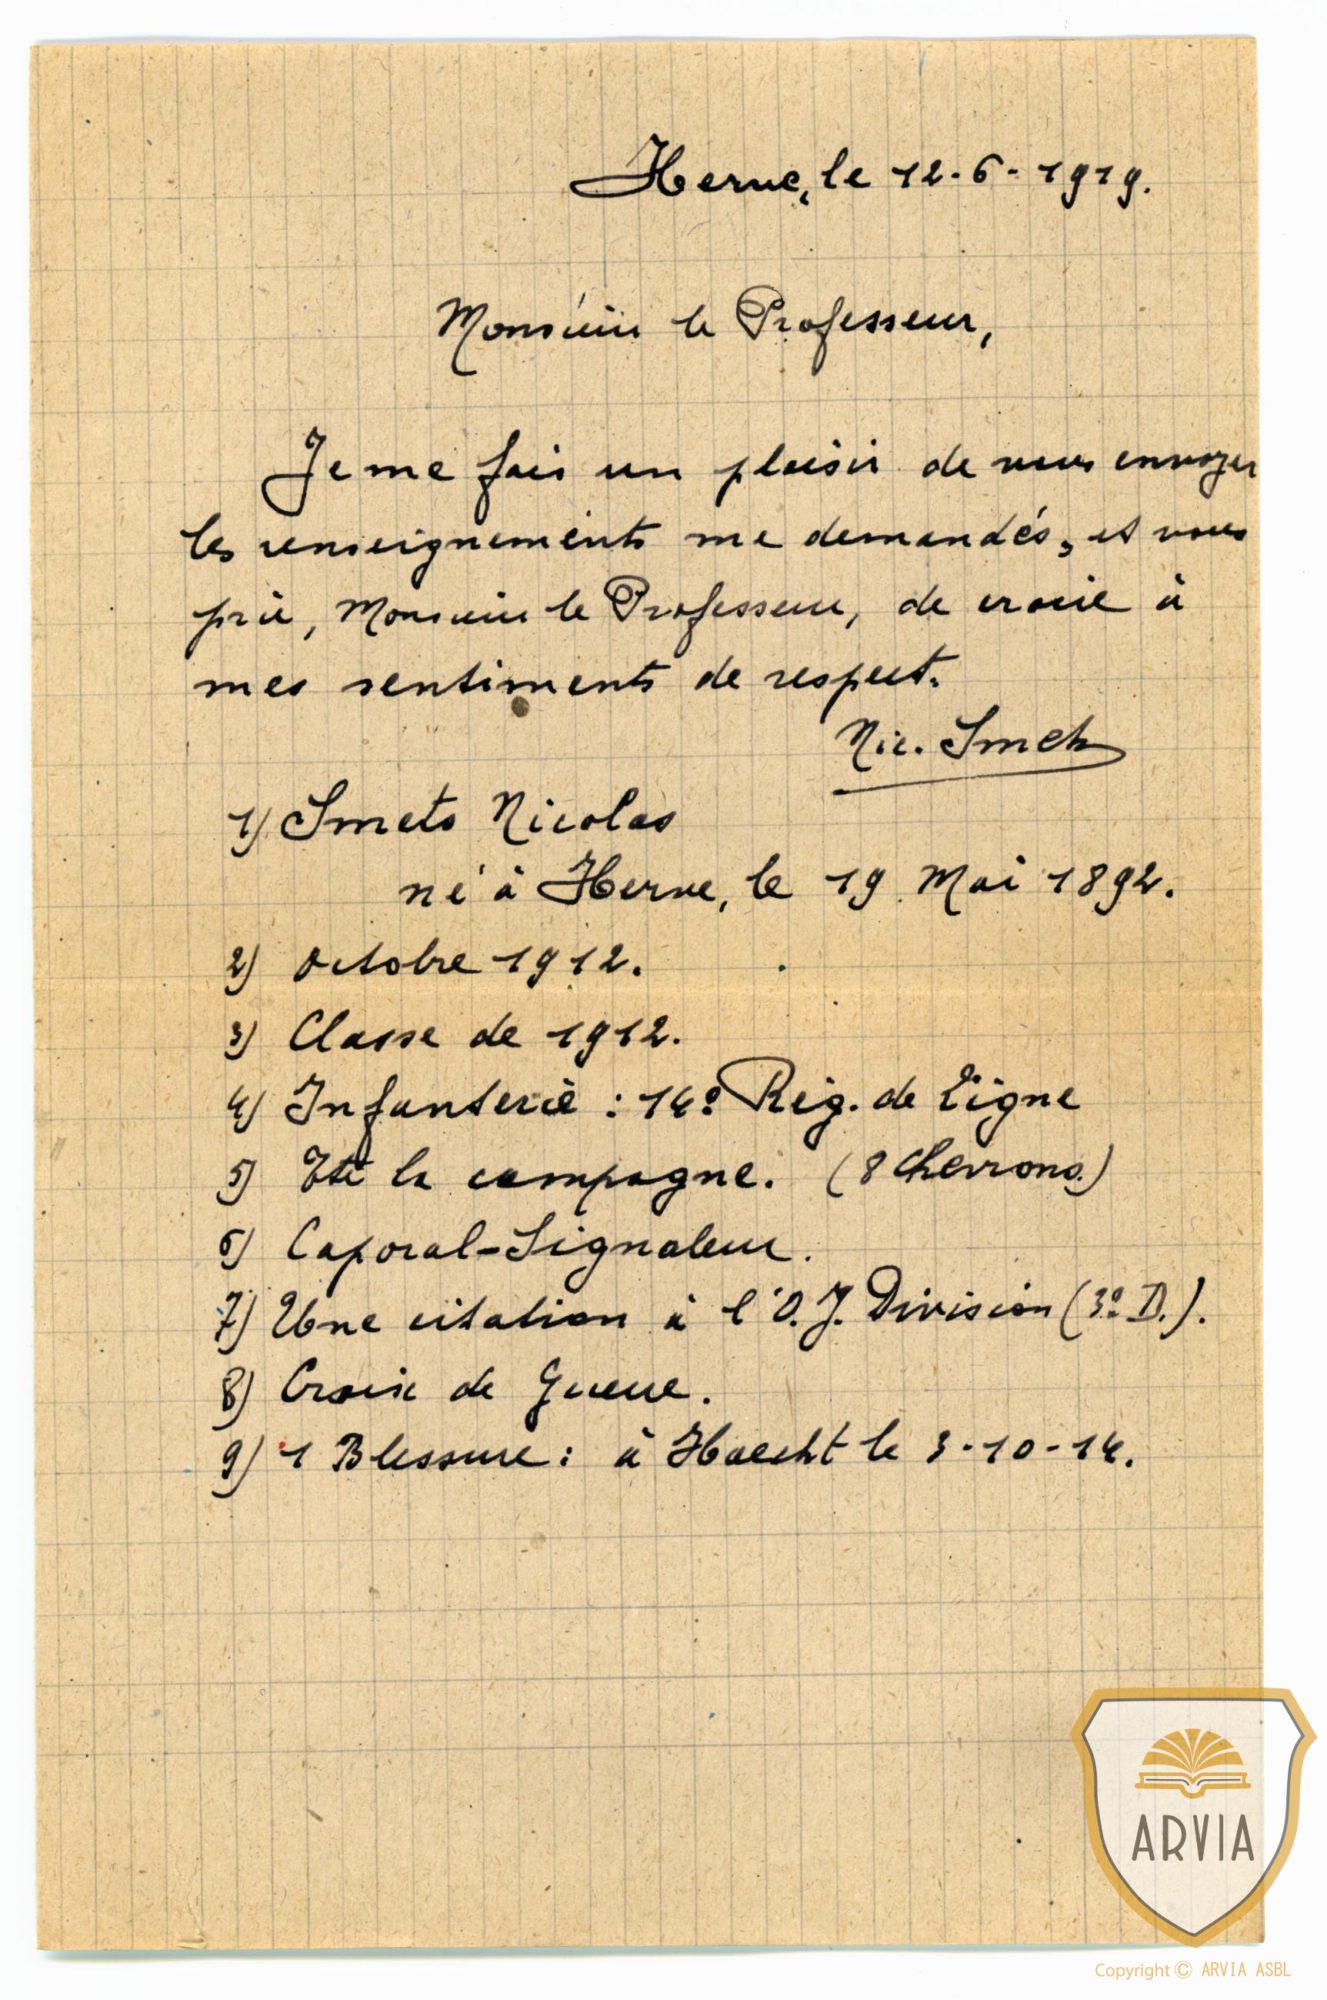 Herve, le 12-6-1919.
Monsieur le Professeur,
Je me fais un plaisir de vous envoyer
les renseignements me demandés, et vous
prie, Monsieur le Professeur, de croire à
mes sentiments de respect.
Nic. Smets
1) Smets Nicolas
né à Herve, le 19 Mai 1892.
2) Octobre 1912.
3) Classe de 1912.
4) Infanterie : 14e Rég. de Ligne
5) la campagne. (8 chevrons)
6) Caporal-Signaleur.
7) Une citation à l'O. J. Division (3e D.).
8) Croix de Guerre.
9) 1 Blessure : à Haecht le 3-10-14.
ARVIA
Copyright © ARVIA ASBL